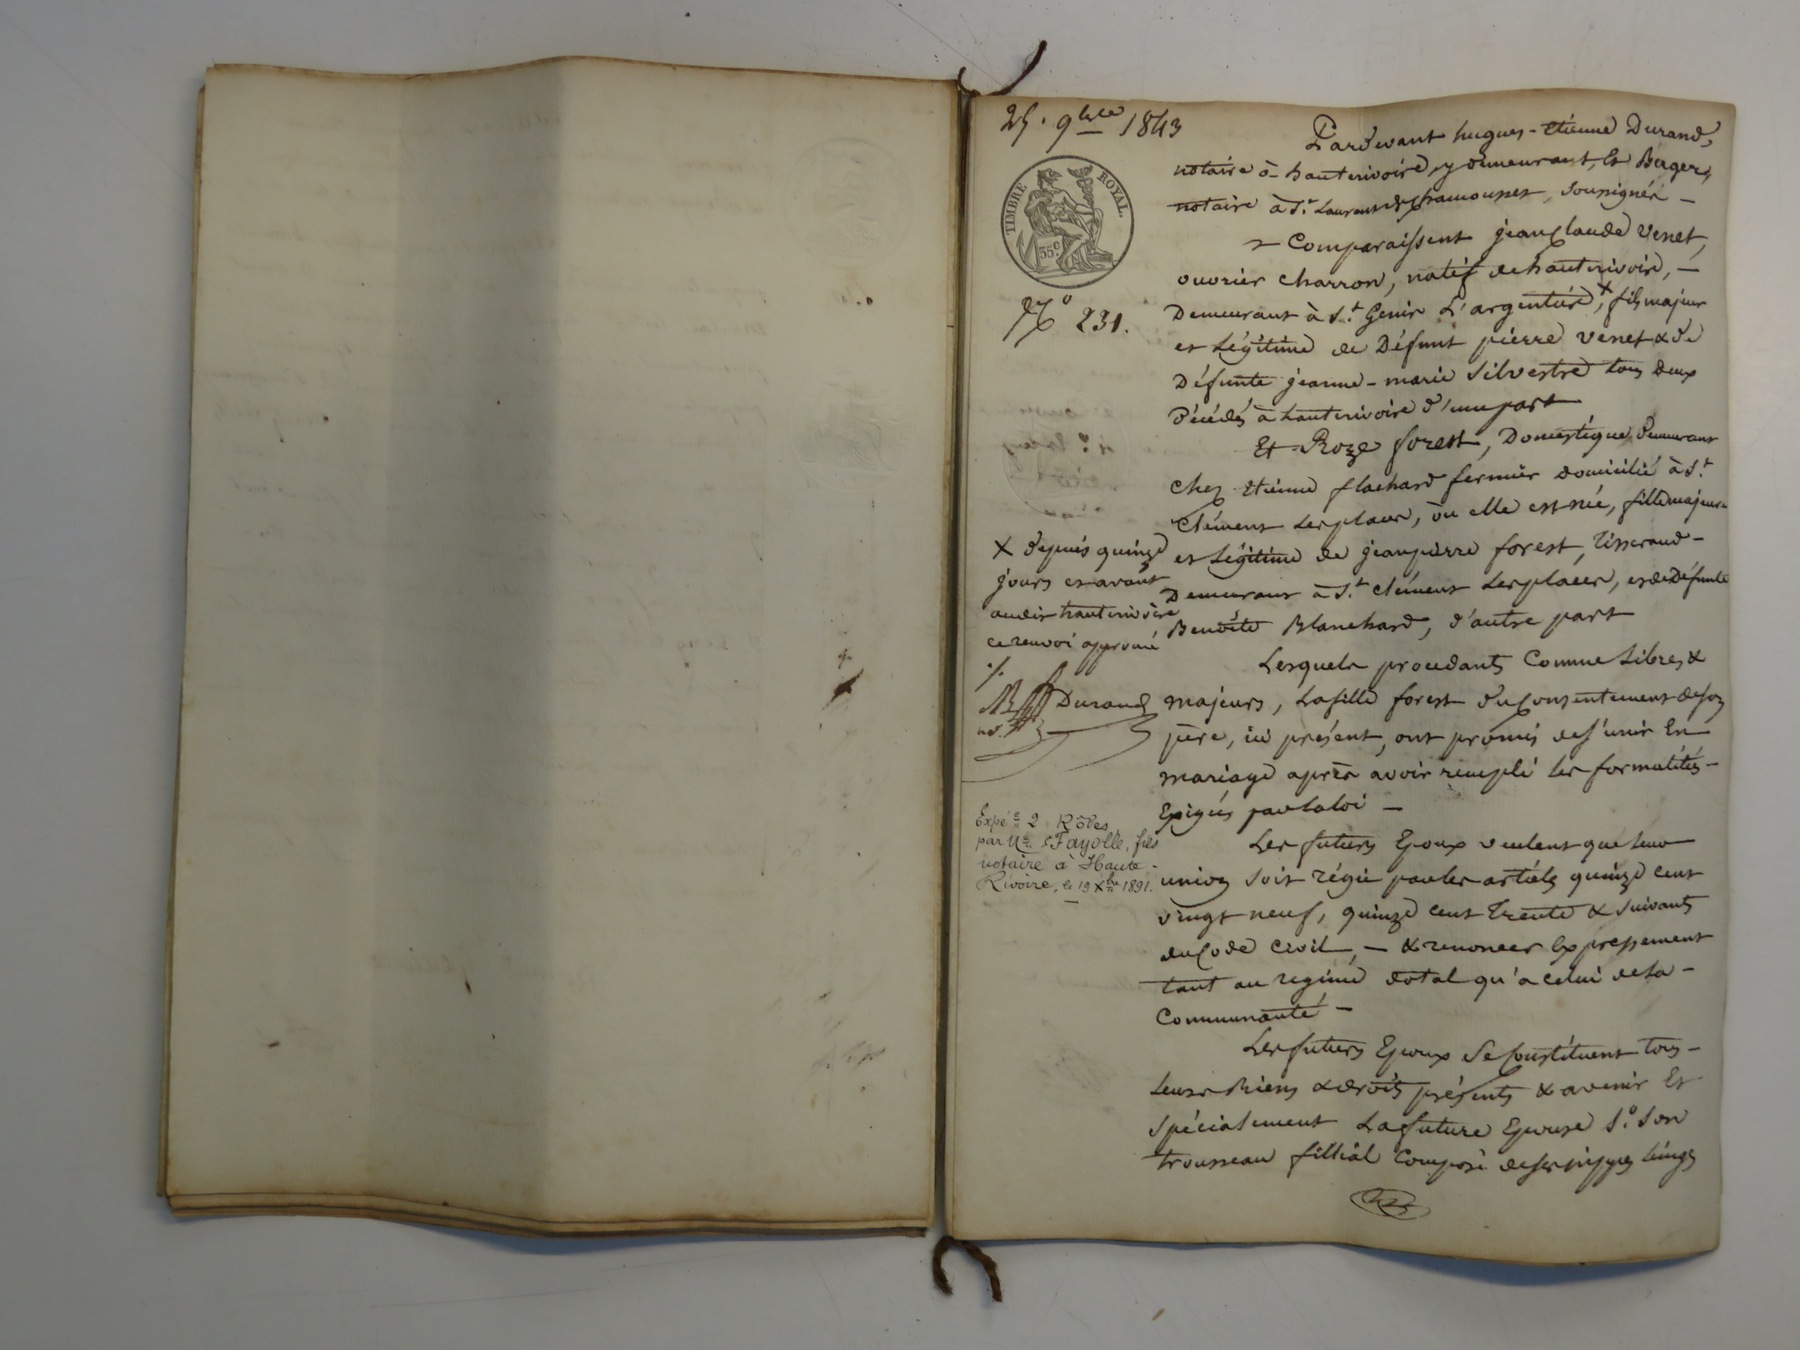 25. 9bre 1843
TIMBRE ROYAL.
35c.
No 231.
Pardevant hugues-étienne Durand,
notaire à hauterivoire, y demeurant, et Berger,
notaire à St. Laurent de chamousset, soussignés -
Comparaissent jean claude Venet,
ouvrier charron, natif de hauterivoire, -
Demeurant à St. Genis L'argentière, X fils majeur
et Légitime de Défunt pierre Venet & de
Défunte jeanne-marie Silvestre tous deux
Décédés à hauterivoire d'une part
Et Roze forest, Domestique, demeurant
chez étienne flachard fermier domicilié à St.
Clément les places, où elle est née, fille majeure
et Légitime de jean pierre forest, Tisserand -
Demeurant à St. clément les places, et de Défunte
Benoite Blanchard, d'autre part
Lesquels procédants comme Libres &
majeurs, La fille forest du consentement de son
père, ici présent, ont promis de s'unir En
mariage après avoir rempli les formalités -
Exigées par la loi -
Les futurs Epoux veulent que leur
union soit régie par les articles quinze cent
vingt neuf, quinze cent Trente & suivants
du Code Civil, - & renoncer Expressement
tant au regime dotal qu'a celui de la -
Communauté -
Les futurs Epoux Se Constituent tous -
Leurs Biens & droits présents & avenir Et
Spécialement La future Epouse So. Son
trousseau fillial Composé de ses nippes linges
X depuis quinze
jours et avant
audit hauterivoire
ce renvoi approuvé
Durand
Expé.on 2 Rôles
par Me Fayolle, fils
notaire à Haute-
Rivoire, le 19 Xbre 1891.